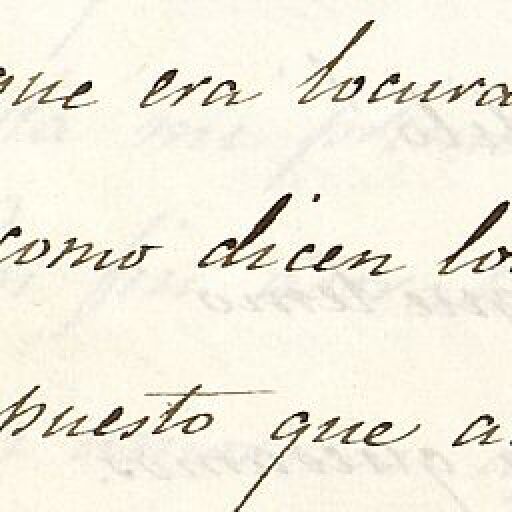 que era locura
como dicen los
puesto que a